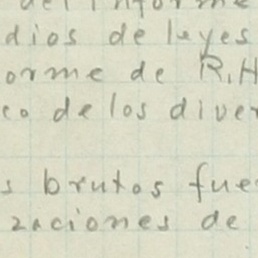 del informe
dios de leyes
orme de R.H
co de los diver
s brutos fue
zaciones de